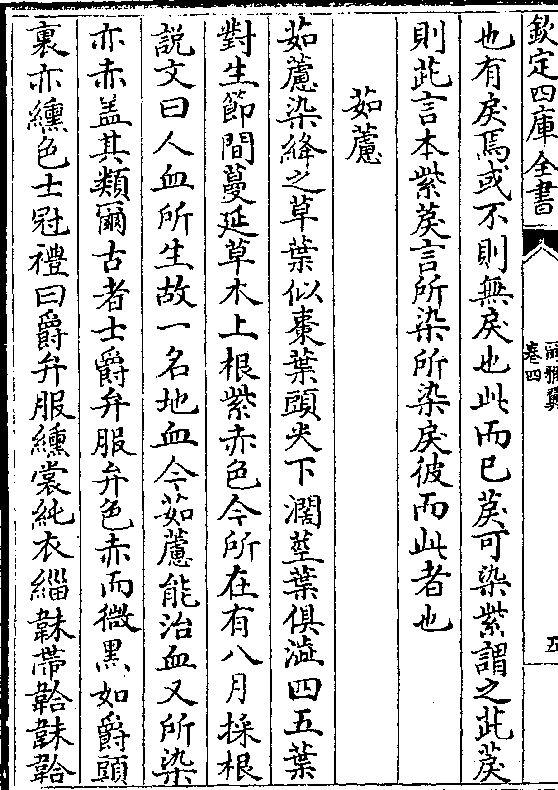 欽定四庫全書
爾雅翼
卷四
五
也有戾焉或不則無戾也此而已茢可染紫謂之茈茢
則茈言本紫茢言所染所染戾彼而此者也
茹藘
茹藘染絳之草葉似棗葉頭尖下濶莖葉俱澁四五葉
對生節間蔓延草木上根紫赤色今所在有八月採根
說文曰人血所生故一名地血今茹藘能治血又所染
亦赤盖其類爾古者士爵弁服弁色赤而微黑如爵頭
裏亦纁色士冠禮曰爵弁服纁裳純衣緇韎帶韐韎韐